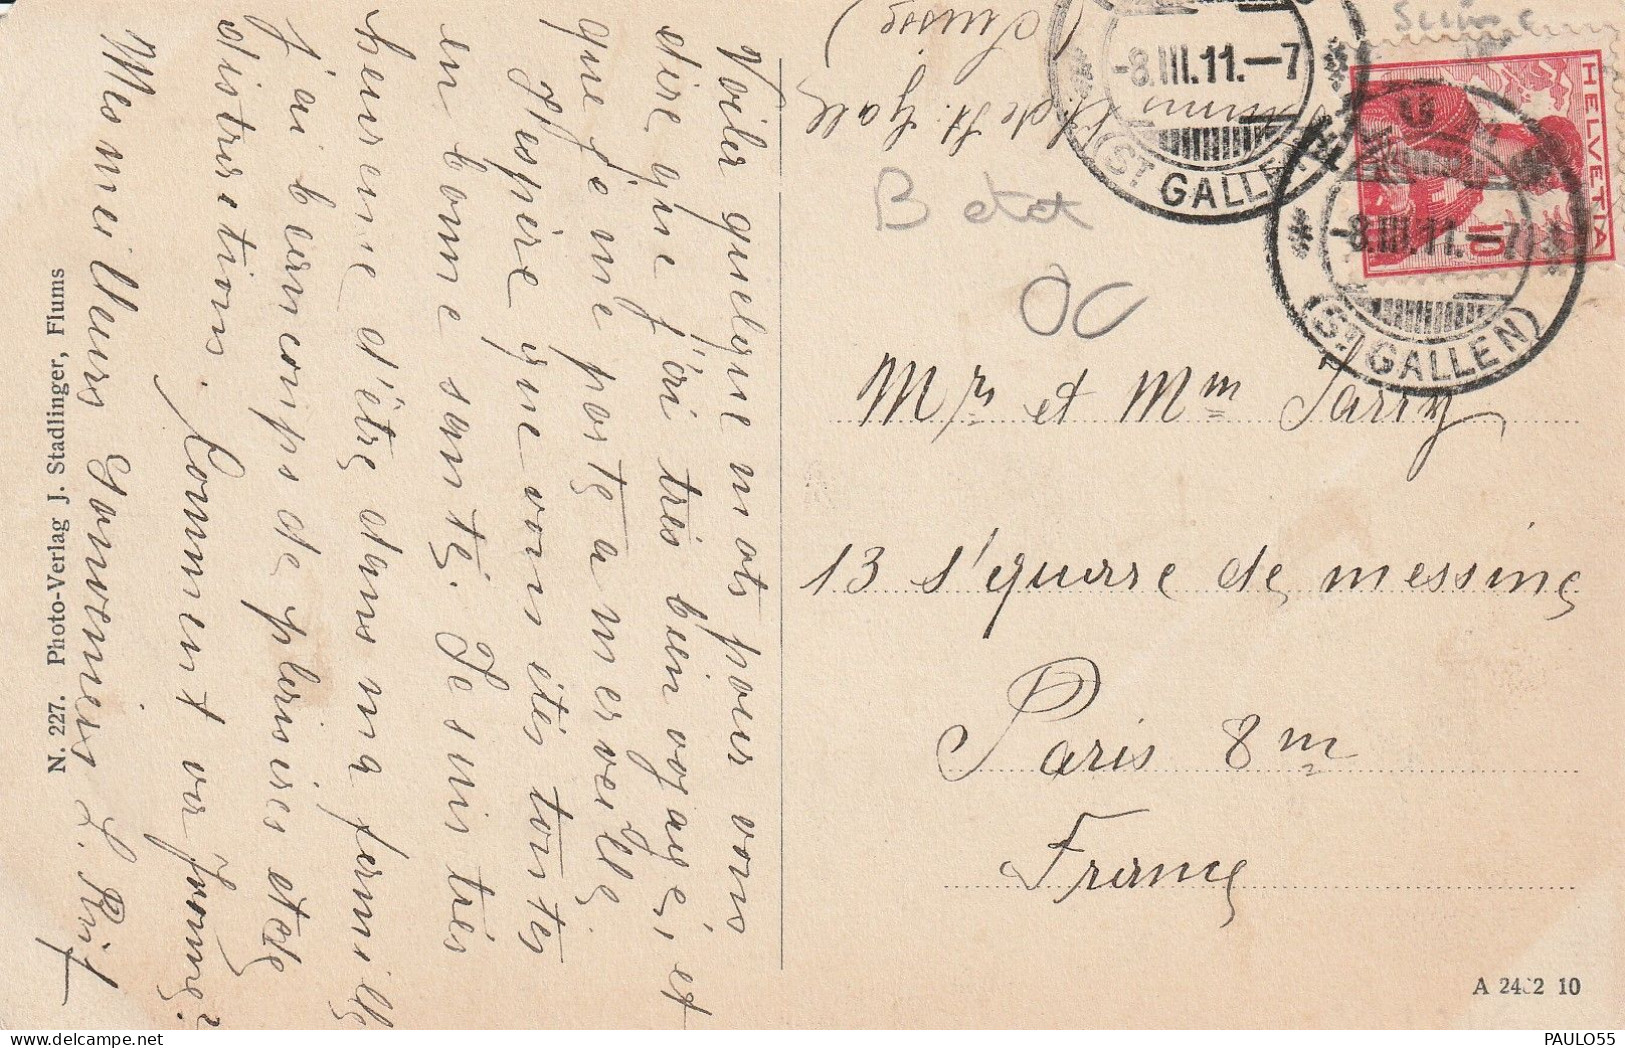 Voiler quelque mots pour vous
dire que j'ai très bien voyagé, et
que je me porte a merveille.
J'espère que vous étes toutes
en bonne santé. Je suis très
heureuse d'être dans ma famille
j'ai beaucoups de plaisires et de
distraction. Comment va
Mes meilleurs Souvenirs
N. 227. Photo-Verlag J. Stadlinger, Flums
(Suisse)
Ct de St. Gall
B etat
OC
Suisse
-8.III.11.-7
(ST GALLEN)
-8.III.11.-7
(ST GALLEN)
HELVETIA
10
Mr et Mm Sarry
13 s'quare de messine
Paris 8m
France
A 2432 10
PAULO55